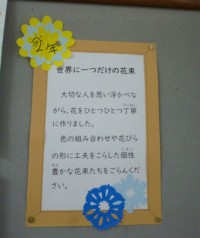 世界に一つだけの花束
大切な人を思い浮かべな
がら、花をひとつひとつ丁寧
に作りました。
色の組み合わせや花びら
の形に工夫をこらした個性
豊かな花束たちをごらんくだ
さい。